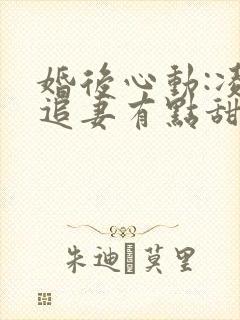 婚後心動:凌
追妻有點甜
朱迪 莫里